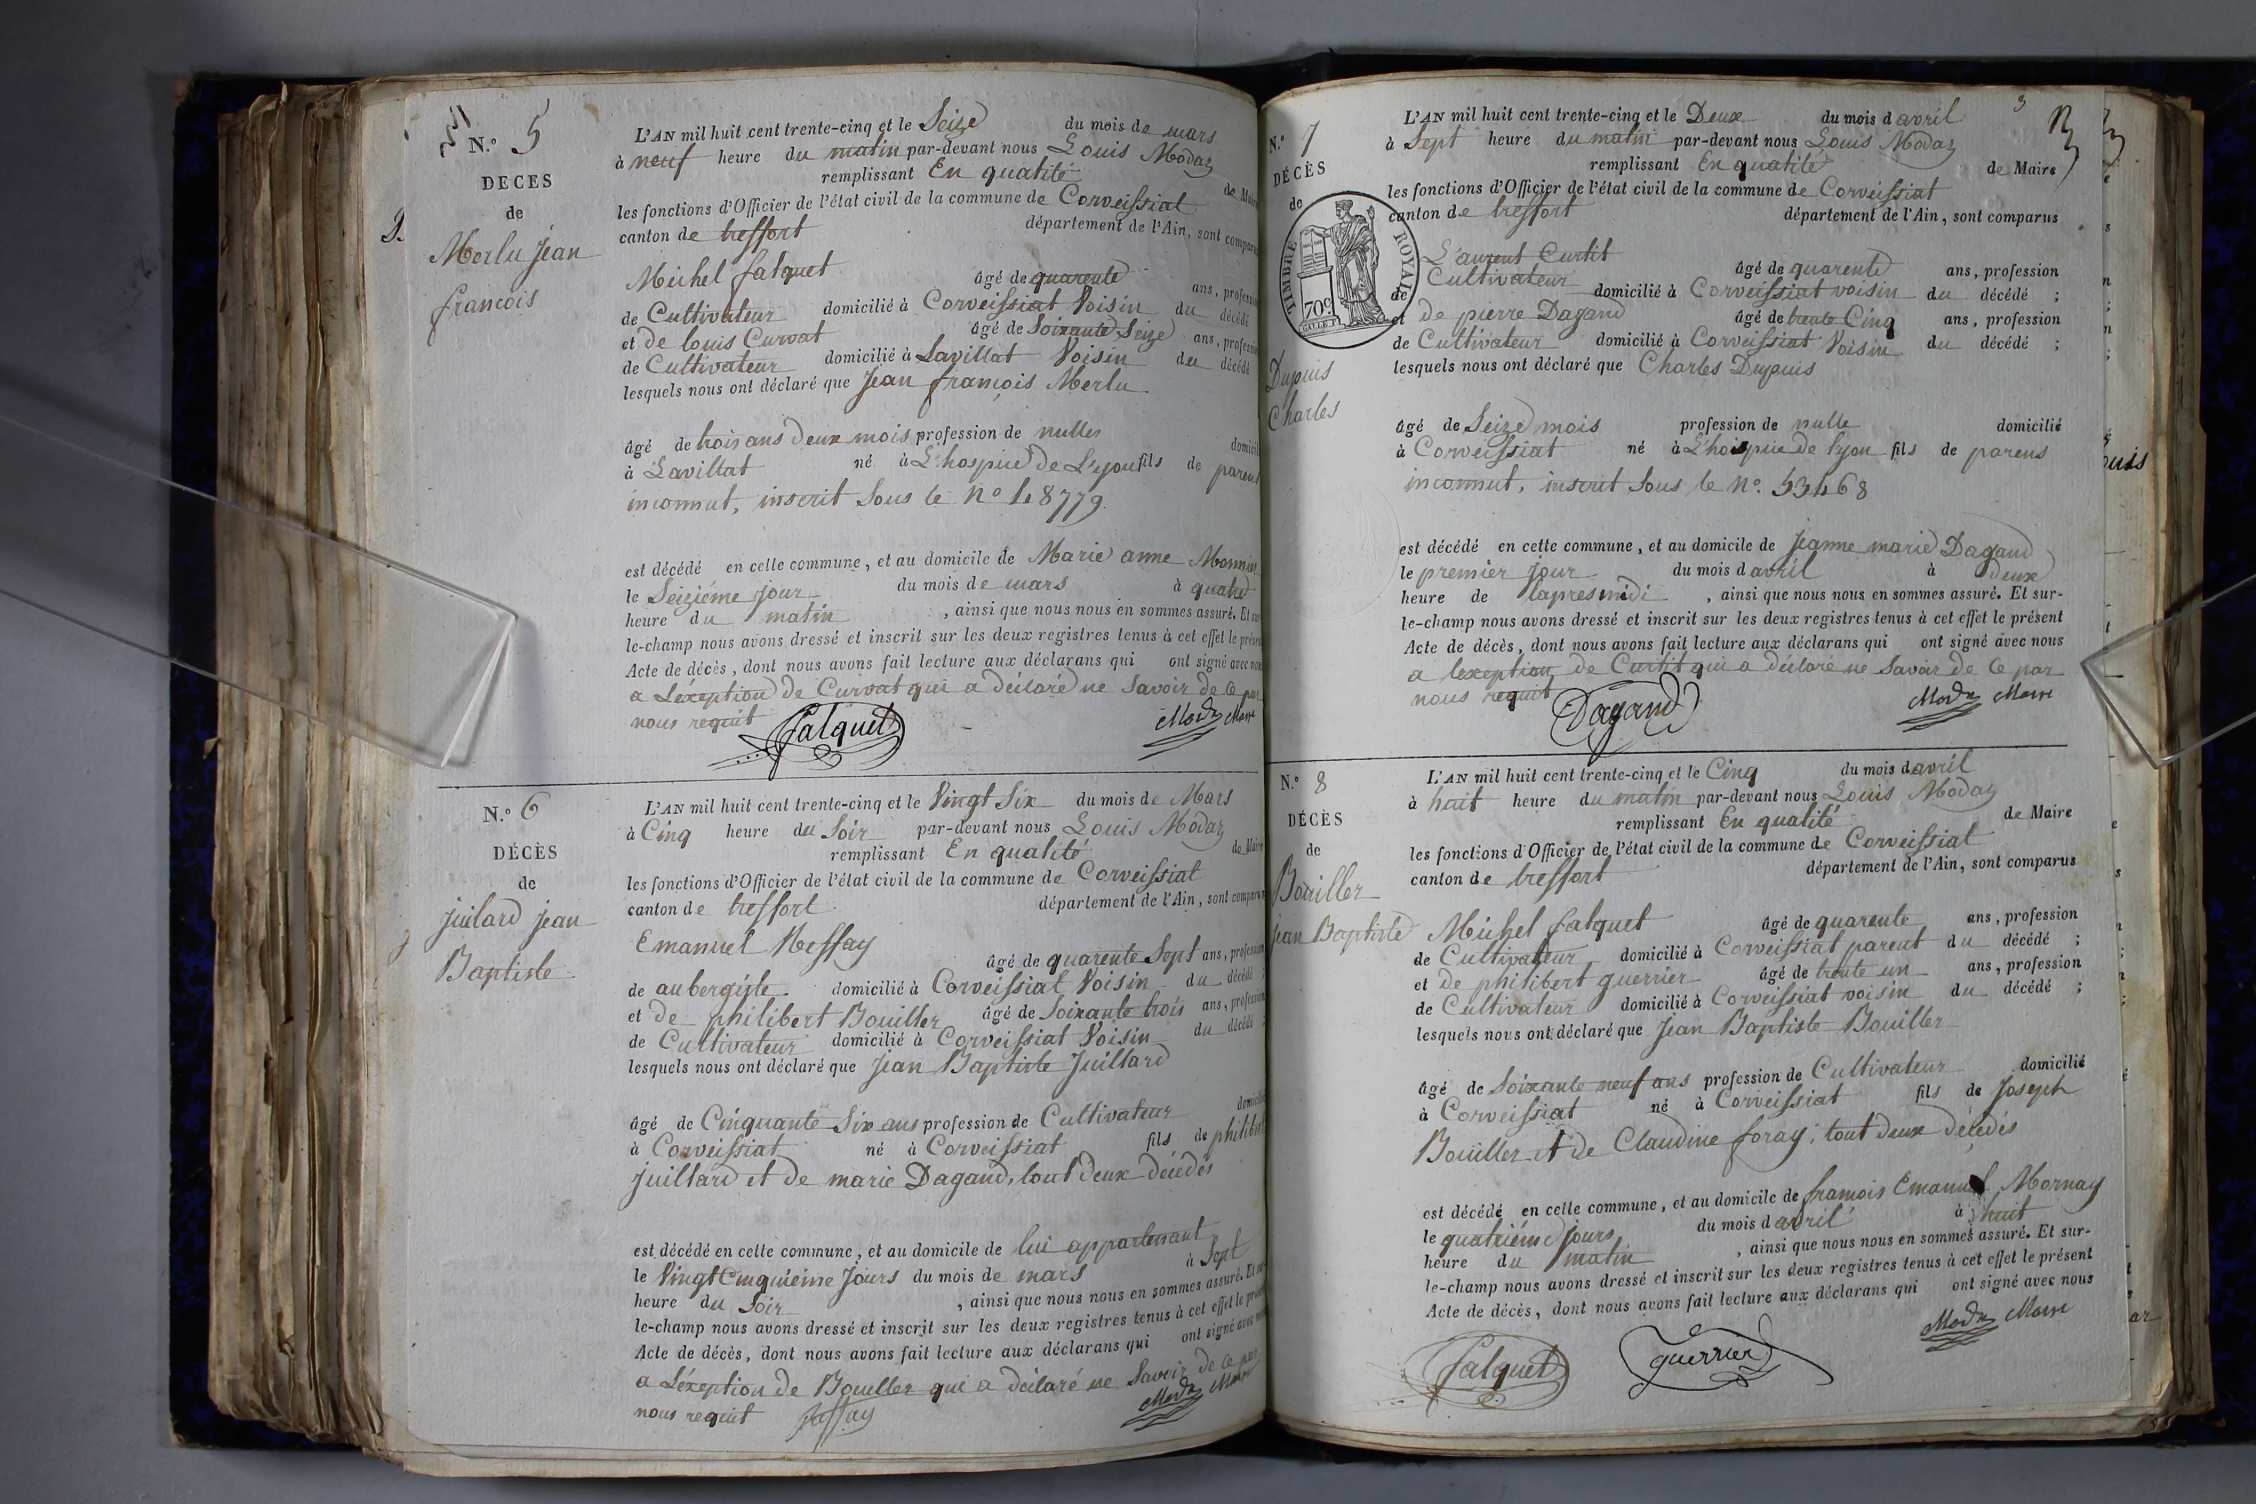 N.º 5
DECES
de
Merlu jean
francois
L'AN mil huit cent trente-cinq et le Seize du mois de mars
à neuf heure du matin par-devant nous Louis Modaz
remplissant En qualité de Maire
les fonctions d'Officier de l'état civil de la commune de Corveissiat
canton de treffort département de l'Ain, sont comparus
Michel falquet âgé de quarente ans, profession
de Cultivateur domicilié à Corveissiat Voisin du décédé
et de louis Curvat âgé de Soixante Seize ans, profession
de Cultivateur domicilié à Lavillat Voisin du décédé
lesquels nous ont déclaré que Jean françois Merlu
âgé de trois ans deux mois profession de nulles
à Lavillat né à L'hospice de Lyon fils de parens
inconnut, inscrit Sous le Nº 48779
est décédé en cette commune, et au domicile de Marie anne Monnier
le Seiziéme jour du mois de mars à quatre
heure du matin, ainsi que nous nous en sommes assuré. Et sur-
le-champ nous avons dressé et inscrit sur les deux registres tenus à cet effet le présent
Acte de décès, dont nous avons fait lecture aux déclarans qui ont signé avec nous
a Léxeption de Curvat qui a déclaré ne Savoir de ce par
nous requit
falquet Modaz Maire
N.º 6
DÉCÈS
de
juilard jean
Baptiste
L'AN mil huit cent trente-cinq et le Vingt Six du mois de Mars
à Cinq heure du Soir par-devant nous Louis Modaz
remplissant En qualité de Maire
les fonctions d'Officier de l'état civil de la commune de Corveissiat
canton de treffort département de l'Ain, sont comparus
Emanuel Neffay âgé de quarente Sept ans, profession
de aubergiste domicilié à Corveissiat Voisin du décédé
et de philibert Bouiller âgé de Soixante trois ans, profession
de Cultivateur domicilié à Corveissiat Voisin du décédé
lesquels nous ont déclaré que Jean Baptiste Juillard
âgé de Cinquante Six ans profession de Cultivateur domicilié
à Corveissiat né à Corveissiat fils de philibert
juillard et de marie Dagand, tout deux décédés
est décédé en cette commune, et au domicile de lui appartenant
le Vingt Cinquiéme Jours du mois de mars à Sept
heure du Soir, ainsi que nous nous en sommes assuré. Et sur-
le-champ nous avons dressé et inscrit sur les deux registres tenus à cet effet le présent
Acte de décès, dont nous avons fait lecture aux déclarans qui ont signé avec nous
a Léxeption de Bouiller qui a déclaré ne Savoir de ce par
nous requit
Modaz Maire
N.º 7
DÉCÈS
de
TIMBRE ROYAL
70c
Dupuis
Charles
L'AN mil huit cent trente-cinq et le Deux du mois d avril
à Sept heure du matin par-devant nous Louis Modaz
remplissant En qualité de Maire
les fonctions d'Officier de l'état civil de la commune de Corveissiat
canton de treffort département de l'Ain, sont comparus
Laurent Curtit âgé de quarente ans, profession
de Cultivateur domicilié à Corveissiat voisin du décédé ;
et de pierre Dagand âgé de trente Cinq ans, profession
de Cultivateur domicilié à Corveissiat Voisin du décédé ;
lesquels nous ont déclaré que Charles Dupuis
âgé de Seize mois profession de nulle domicilié
à Corveissiat né à L'hospice de lyon fils de parens
inconnut, inscrit Sous le Nº. 53468
est décédé en cette commune, et au domicile de Jeanne marie Dagand
le premier jour du mois d avril à deux
heure de lapresmidi, ainsi que nous nous en sommes assuré. Et sur-
le-champ nous avons dressé et inscrit sur les deux registres tenus à cet effet le présent
Acte de décès, dont nous avons fait lecture aux déclarans qui ont signé avec nous
a lexeption de Curtit qui a déclaré ne Savoir de ce par
nous requit
Dagand Modaz Maire
N.º 8
DÉCÈS
de
Bouiller
jean Baptiste
L'AN mil huit cent trente-cinq et le Cinq du mois d avril
à huit heure du matin par-devant nous Louis Modaz
remplissant En qualité de Maire
les fonctions d'Officier de l'état civil de la commune de Corveissiat
canton de treffort département de l'Ain, sont comparus
Michel falquet âgé de quarente ans, profession
de Cultivateur domicilié à Corveissiat parent du décédé ;
et de philibert guerrier âgé de trente un ans, profession
de Cultivateur domicilié à Corveissiat voisin du décédé ;
lesquels nous ont déclaré que Jean Baptiste Bouiller
âgé de Soixante neuf ans profession de Cultivateur domicilié
à Corveissiat né à Corveissiat fils de Joseph
Bouiller et de Claudine foray, tout deux décédés
est décédé en cette commune, et au domicile de françois Emanuel Mornay
le quatriéme jours du mois d avril à huit
heure du matin, ainsi que nous nous en sommes assuré. Et sur-
le-champ nous avons dressé et inscrit sur les deux registres tenus à cet effet le présent
Acte de décès, dont nous avons fait lecture aux déclarans qui ont signé avec nous
falquet guerrier Modaz Maire